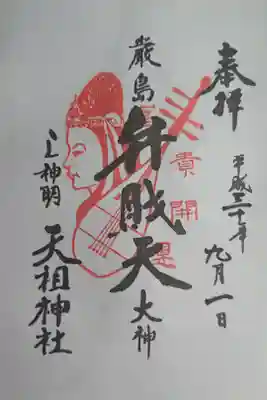 奉拝
平成三十年
九月一日
厳島
弁財天
大神
貴開
上神明
天祖神社